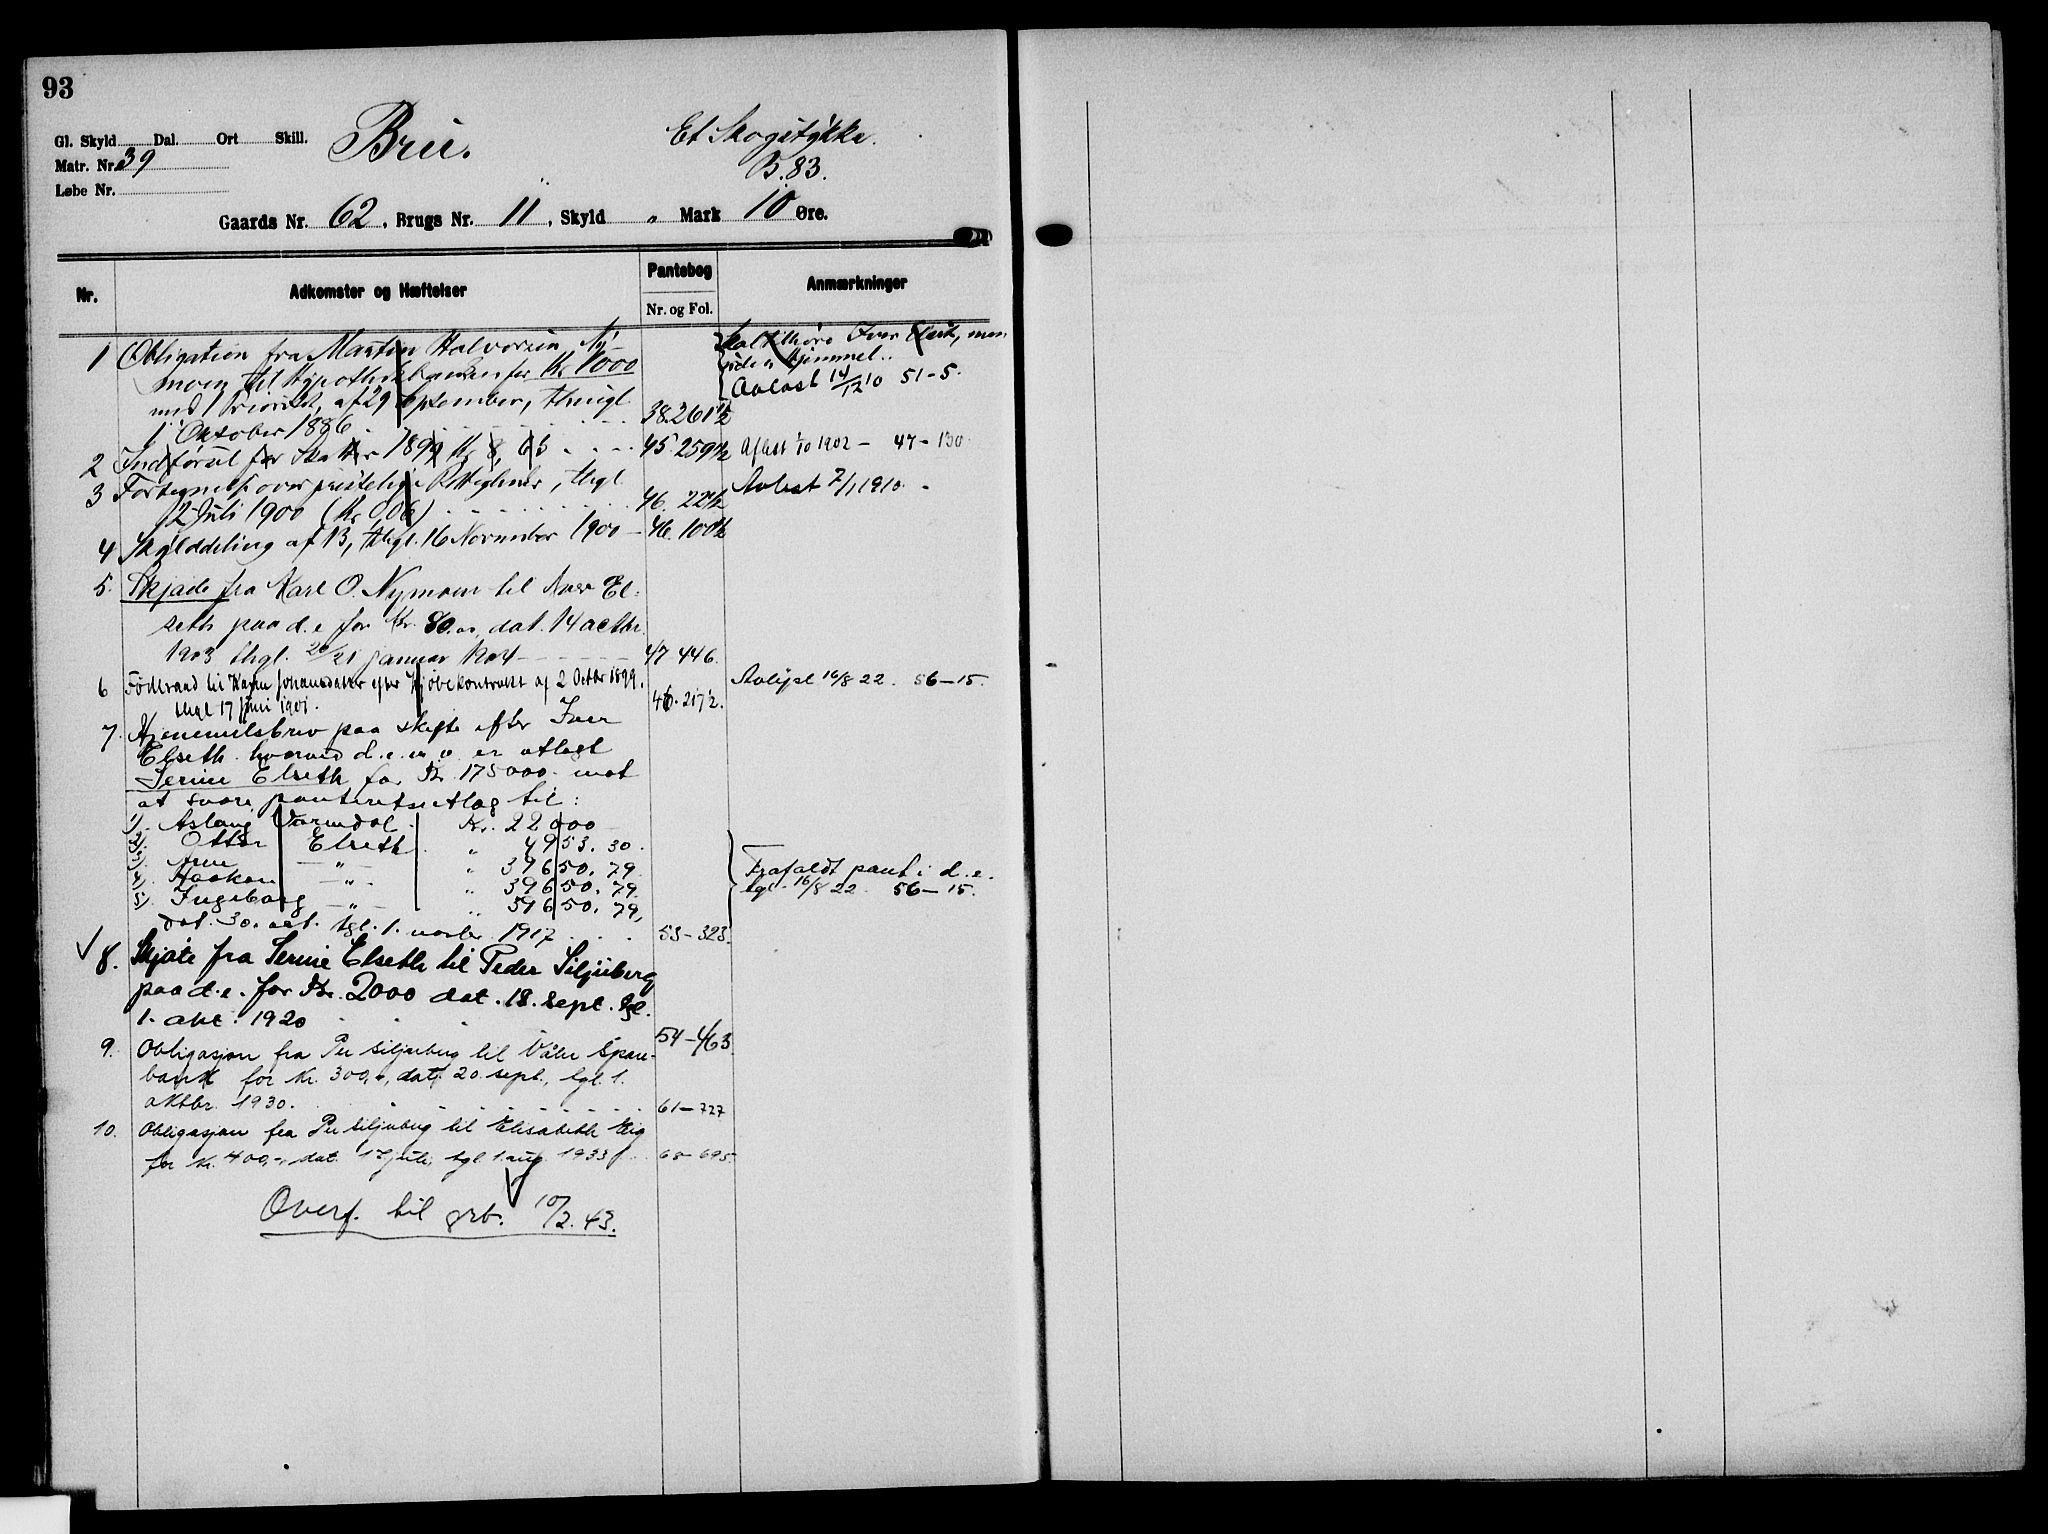 93
Gl. Skyld Dal. Ort Skill.
Matr. Nr. 39
Løbe Nr.
Brii.
Et Skogstykke.
B. 83.
Gaards Nr. 62, Brugs Nr. 11, Skyld " Mark 10 Øre.
Nr.
Adkomster og Hæftelser
Pantebog
Nr. og Fol.
Anmærkninger
1 Obligation fra Martin Halvorsen Ny-
moen til Hypothekbanken for Kr. 1000
med 1 Prioritet, af 29 September, thingl.
1 Oktober 1886 38.261½
Skal tilhøre Iver Elset, men
uden hjemmel.
Avlest 14/12 10 51-5.
2 Indførsel for Skatter 1899 Kr. 8,65 45.259½ Aflest 1/10 1902 - 47-130.
3 Fortegnelse over Rettigheder, thgl.
12 Juli 1900 (Kr. 0,06) 46.22½ Avlest 7/1 1910.
4 Skylddeling af B, thgl. 16 November 1900 - 46.100½
5. Skjøde fra Karl O. Nymoen til Iver El-
seth paa d.e. for Kr. 80.00, dat. 14 octbr.
1903 thgl. 20/21 januar 1904 47 446.
6 Føderaad til Karen Johannesdatter efter Kjøbekontrakt af 2 Octbr 1899.
thgl 17 juni 1901. 46.217½.
Avlyst 16/8 22. 56-15.
7. Hjemmelsbrev paa skifte efter Iver
Elseth hvorved d.e. m.v. er utlagt
Serine Elseth for Kr. 175000.- mot
at svare panteretsutlæg til:
1). Aslaug Varndal Kr. 22000
2). Otter Elseth " 4953.30.
3). Arne -"- " 39650.79.
4). Haakon -"- " 39650.79.
5). Ingeborg -"- " 39650.79,
dat. 30. okt. tgl. 1. novbr. 1917 53-323.
Frafaldt pant i d.e.
tgl. 16/8 22. 56-15.
8. Skjøte fra Serine Elseth til Peder Siljuberg
paa d.e. for Kr. 2000 dat. 18. sept. tgl.
1. okt. 1920 54-463.
9. Obligasjon fra Per Siljuberg til Våler Spare-
bank for kr. 300,-, dat. 20. sept., tgl. 1.
oktbr. 1930. 61-727
10. Obligasjon fra Per Siljuberg til Elisabeth Eig
for kr. 400,-, dat. 17 juli, tgl. 1. aug. 1933 68-695.
Overf. til grb. 10/2. 43.